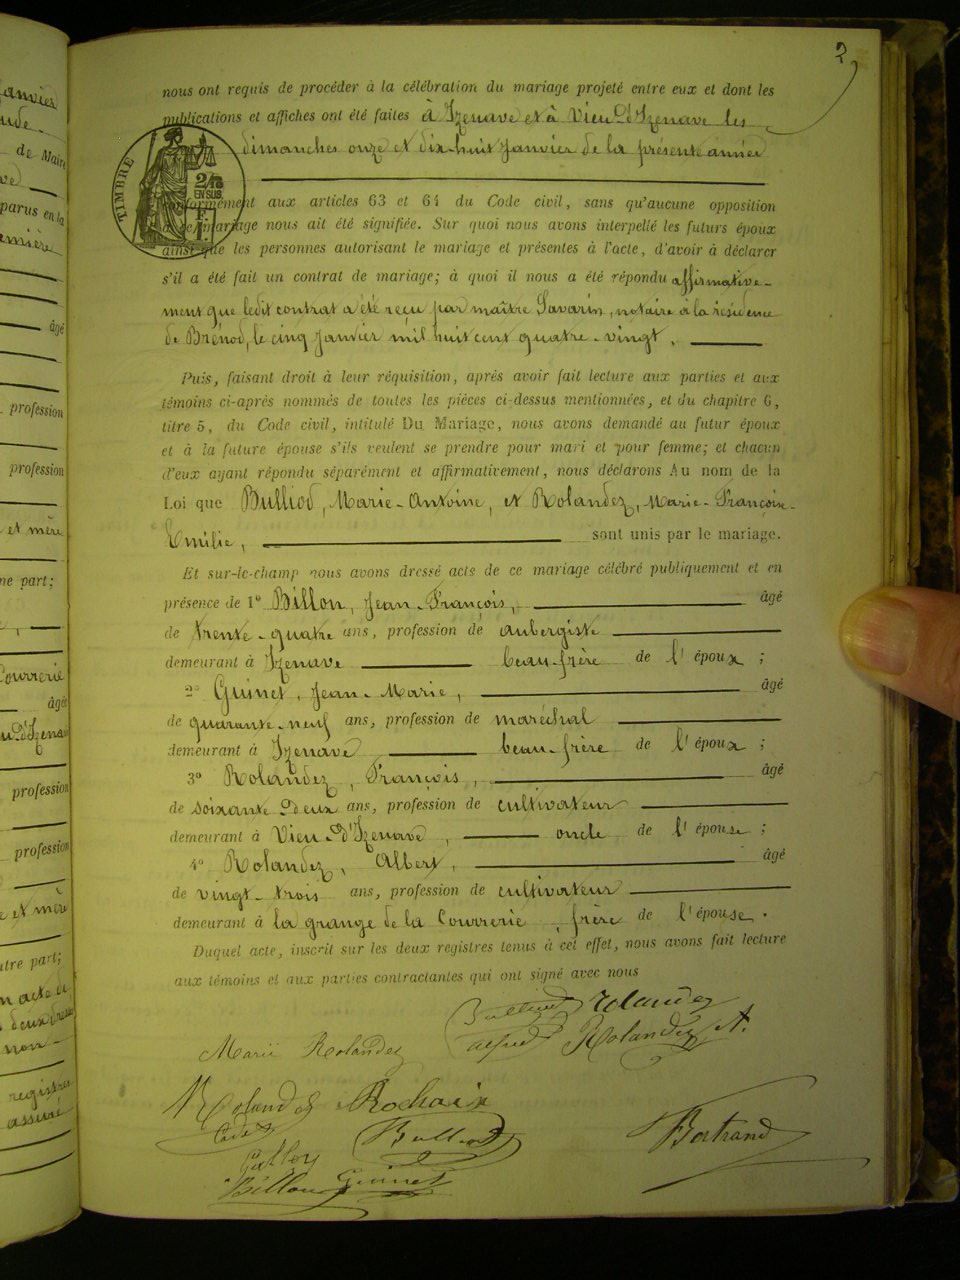 2
nous ont requis de procéder à la célébration du mariage projeté entre eux et dont les
publications et affiches ont été faites à Izenave et à Vieu-d'Izenave les
dimanches onze et dix-huit Janvier de la présente année
TIMBRE
2/10
EN SUS
F.
1
conformément aux articles 63 et 64 du Code civil, sans qu'aucune opposition
à ce mariage nous ait été signifiée. Sur quoi nous avons interpellé les futurs époux
ainsi que les personnes autorisant le mariage et présentes à l'acte, d'avoir à déclarer
s'il a été fait un contrat de mariage; à quoi il nous a été répondu affirmative-
ment que ledit contrat a été reçu par maître Savarin, notaire à la résidence
de Brénod, le cinq Janvier mil huit cent quatre-vingt.
Puis, faisant droit à leur réquisition, après avoir fait lecture aux parties et aux
témoins ci-après nommés de toutes les pièces ci-dessus mentionnées, et du chapitre 6,
titre 5, du Code civil, intitulé Du Mariage, nous avons demandé au futur époux
et à la future épouse s'ils veulent se prendre pour mari et pour femme; et chacun
d'eux ayant répondu séparément et affirmativement, nous déclarons Au nom de la
Loi que Bulliod, Marie-Antoine, et Rolandez, Marie-Françoise-
Emilie, sont unis par le mariage.
Et sur-le-champ nous avons dressé acte de ce mariage célébré publiquement et en
présence de 1º Billon, Jean-François, âgé
de trente-quatre ans, profession de aubergiste
demeurant à Izenave beau-frère de l'époux ;
2º Guinet, Jean-Marie, âgé
de quarante-neuf ans, profession de maréchal
demeurant à Izenave beau-frère de l'époux ;
3º Rolandez, François, âgé
de soixante-deux ans, profession de cultivateur
demeurant à Vieu-d'Izenave, oncle de l'épouse ;
4º Rolandez, Albert, âgé
de vingt-trois ans, profession de cultivateur
demeurant à la grange de la Courrerie, frère de l'épouse.
Duquel acte, inscrit sur les deux registres tenus à cet effet, nous avons fait lecture
aux témoins et aux parties contractantes qui ont signé avec nous
Rolandez
Marie Rolandez Rolandez A.
Rolandez Rochaix
Bulliod Bertrand
Billon Guinet